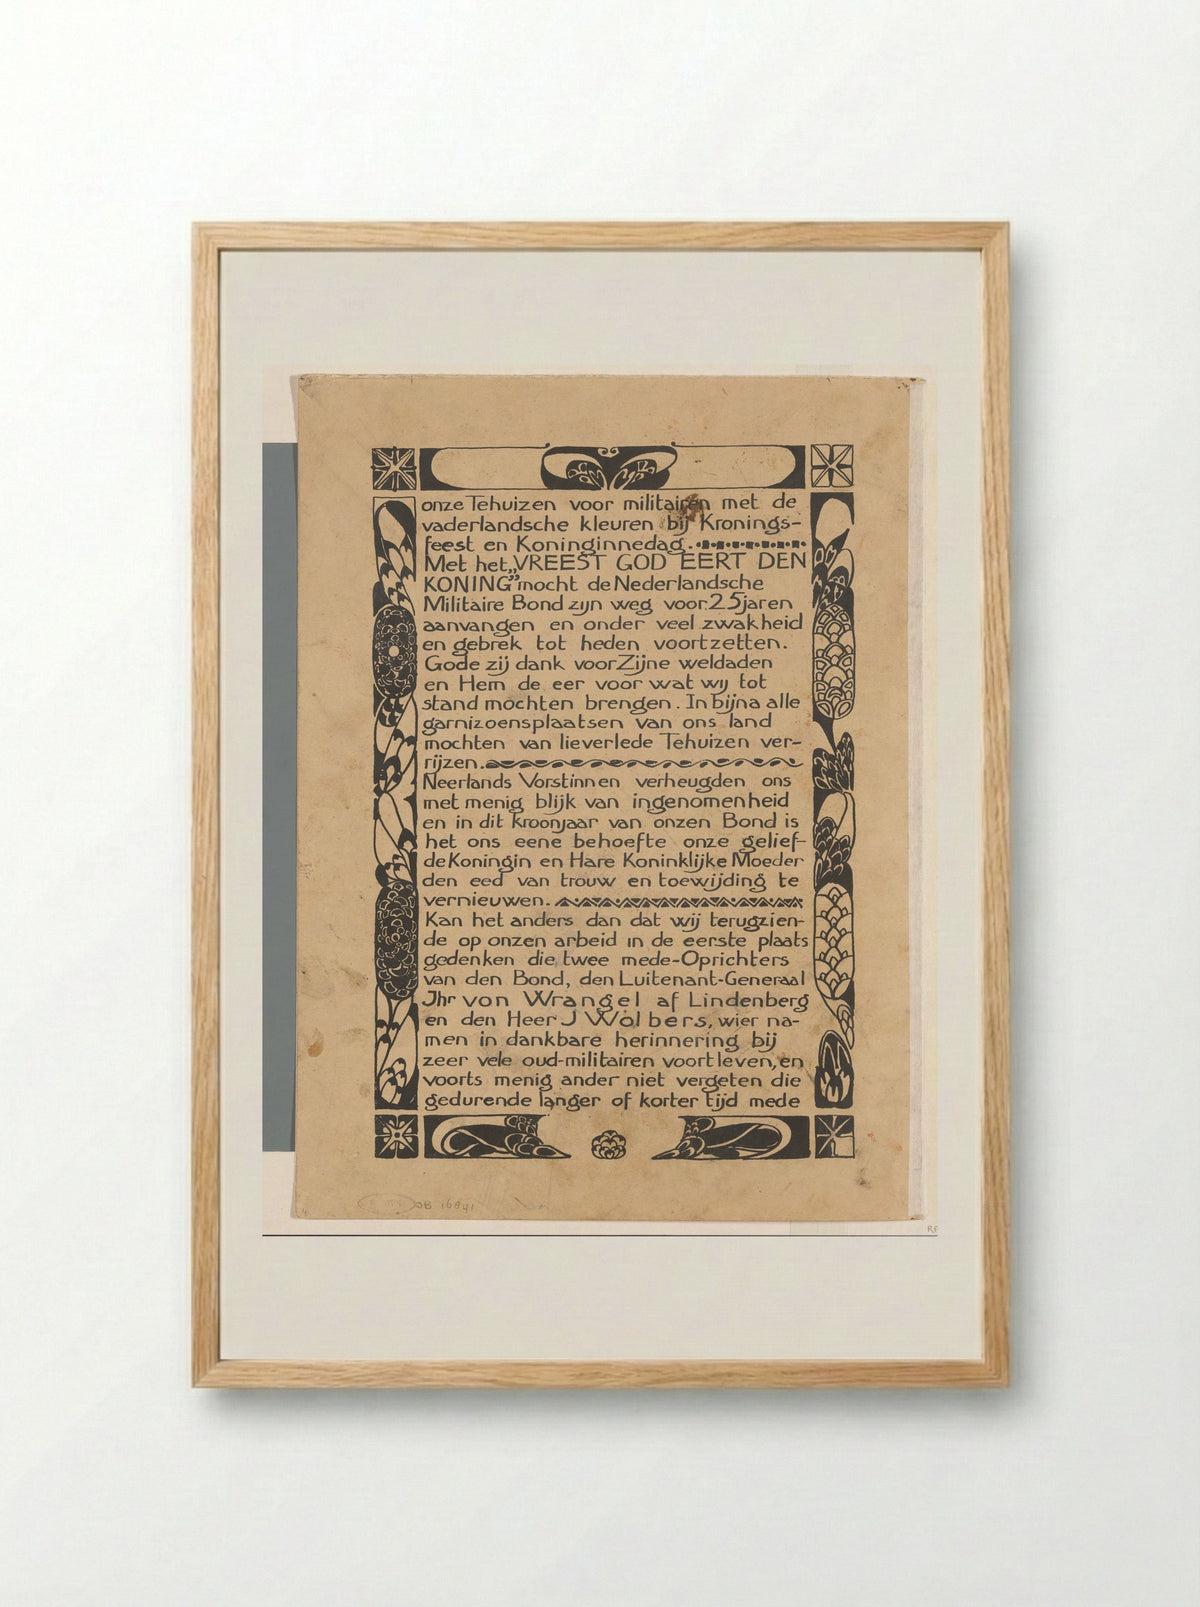 onze Tehuizen voor militairen met de
vaderlandsche kleuren bij Kronings-
feest en Koninginnedag.
Met het „VREEST GOD EERT DEN
KONING” mocht de Nederlandsche
Militaire Bond zijn weg voor 25 jaren
aanvangen en onder veel zwakheid
en gebrek tot heden voortzetten.
Gode zij dank voor Zijne weldaden
en Hem de eer voor wat wij tot
stand mochten brengen. In bijna alle
garnizoensplaatsen van ons land
mochten van lieverlede Tehuizen ver-
rijzen.
Neerlands Vorstinnen verheugden ons
met menig blijk van ingenomenheid
en in dit kroonjaar van onzen Bond is
het ons eene behoefte onze gelief-
de Koningin en Hare Koninklijke Moeder
den eed van trouw en toewijding te
vernieuwen.
Kan het anders dan dat wij terugzien-
de op onzen arbeid in de eerste plaats
gedenken die twee mede-Oprichters
van den Bond, den Luitenant-Generaal
Jhr von Wrangel af Lindenberg
en den Heer J Wolbers, wier na-
men in dankbare herinnering bij
zeer vele oud-militairen voortleven, en
voorts menig ander niet vergeten die
gedurende langer of korter tijd mede
16841